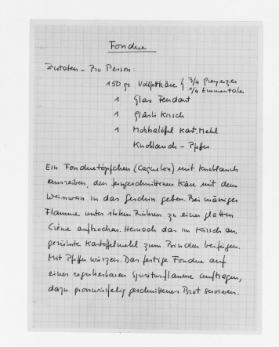 Fondue
Zutaten - Pro Person:
150 gr Vollfettkäse { 3/4 Greyerzer
1/4 Emmentaler
1 Glas Fendant
1 Gläsli Kirsch
1 Mokkalöffel Kart. Mehl
Knoblauch - Pfeffer
Ein Fonduetöpfchen (Caquelon) mit Knoblauch
ausreiben, den feingeschnittenen Käse mit dem
Weisswein in das Geschirr geben. Bei mässiger
Flamme unter stetem Rühren zu einer glatten
Crème aufkochen. Hernach das im Kirsch an-
gerührte Kartoffelmehl zum Binden beifügen.
Mit Pfeffer würzen. Das fertige Fondue auf
einer regulierbaren Spiritusflamme auftragen,
dazu grosswürfelig geschnittenes Brot servieren.